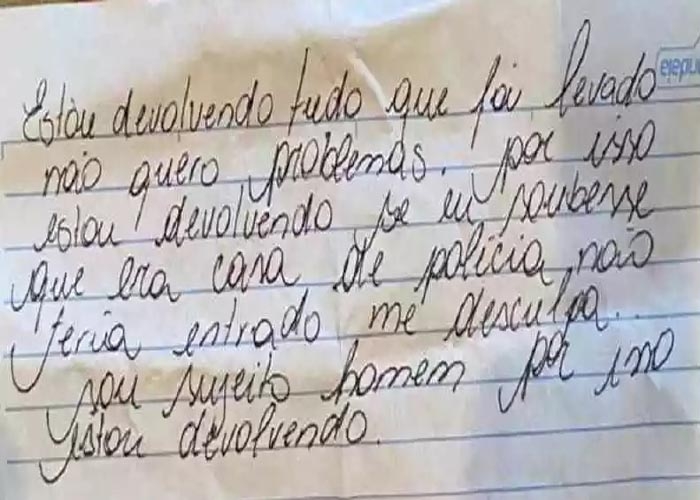 Estou devolvendo tudo que foi levado
não quero problemas. por isso
estou devolvendo, se eu soubesse
que era casa de policia, não
teria entrado me desculpa..
sou sujeito homem por isso
estou devolvendo.